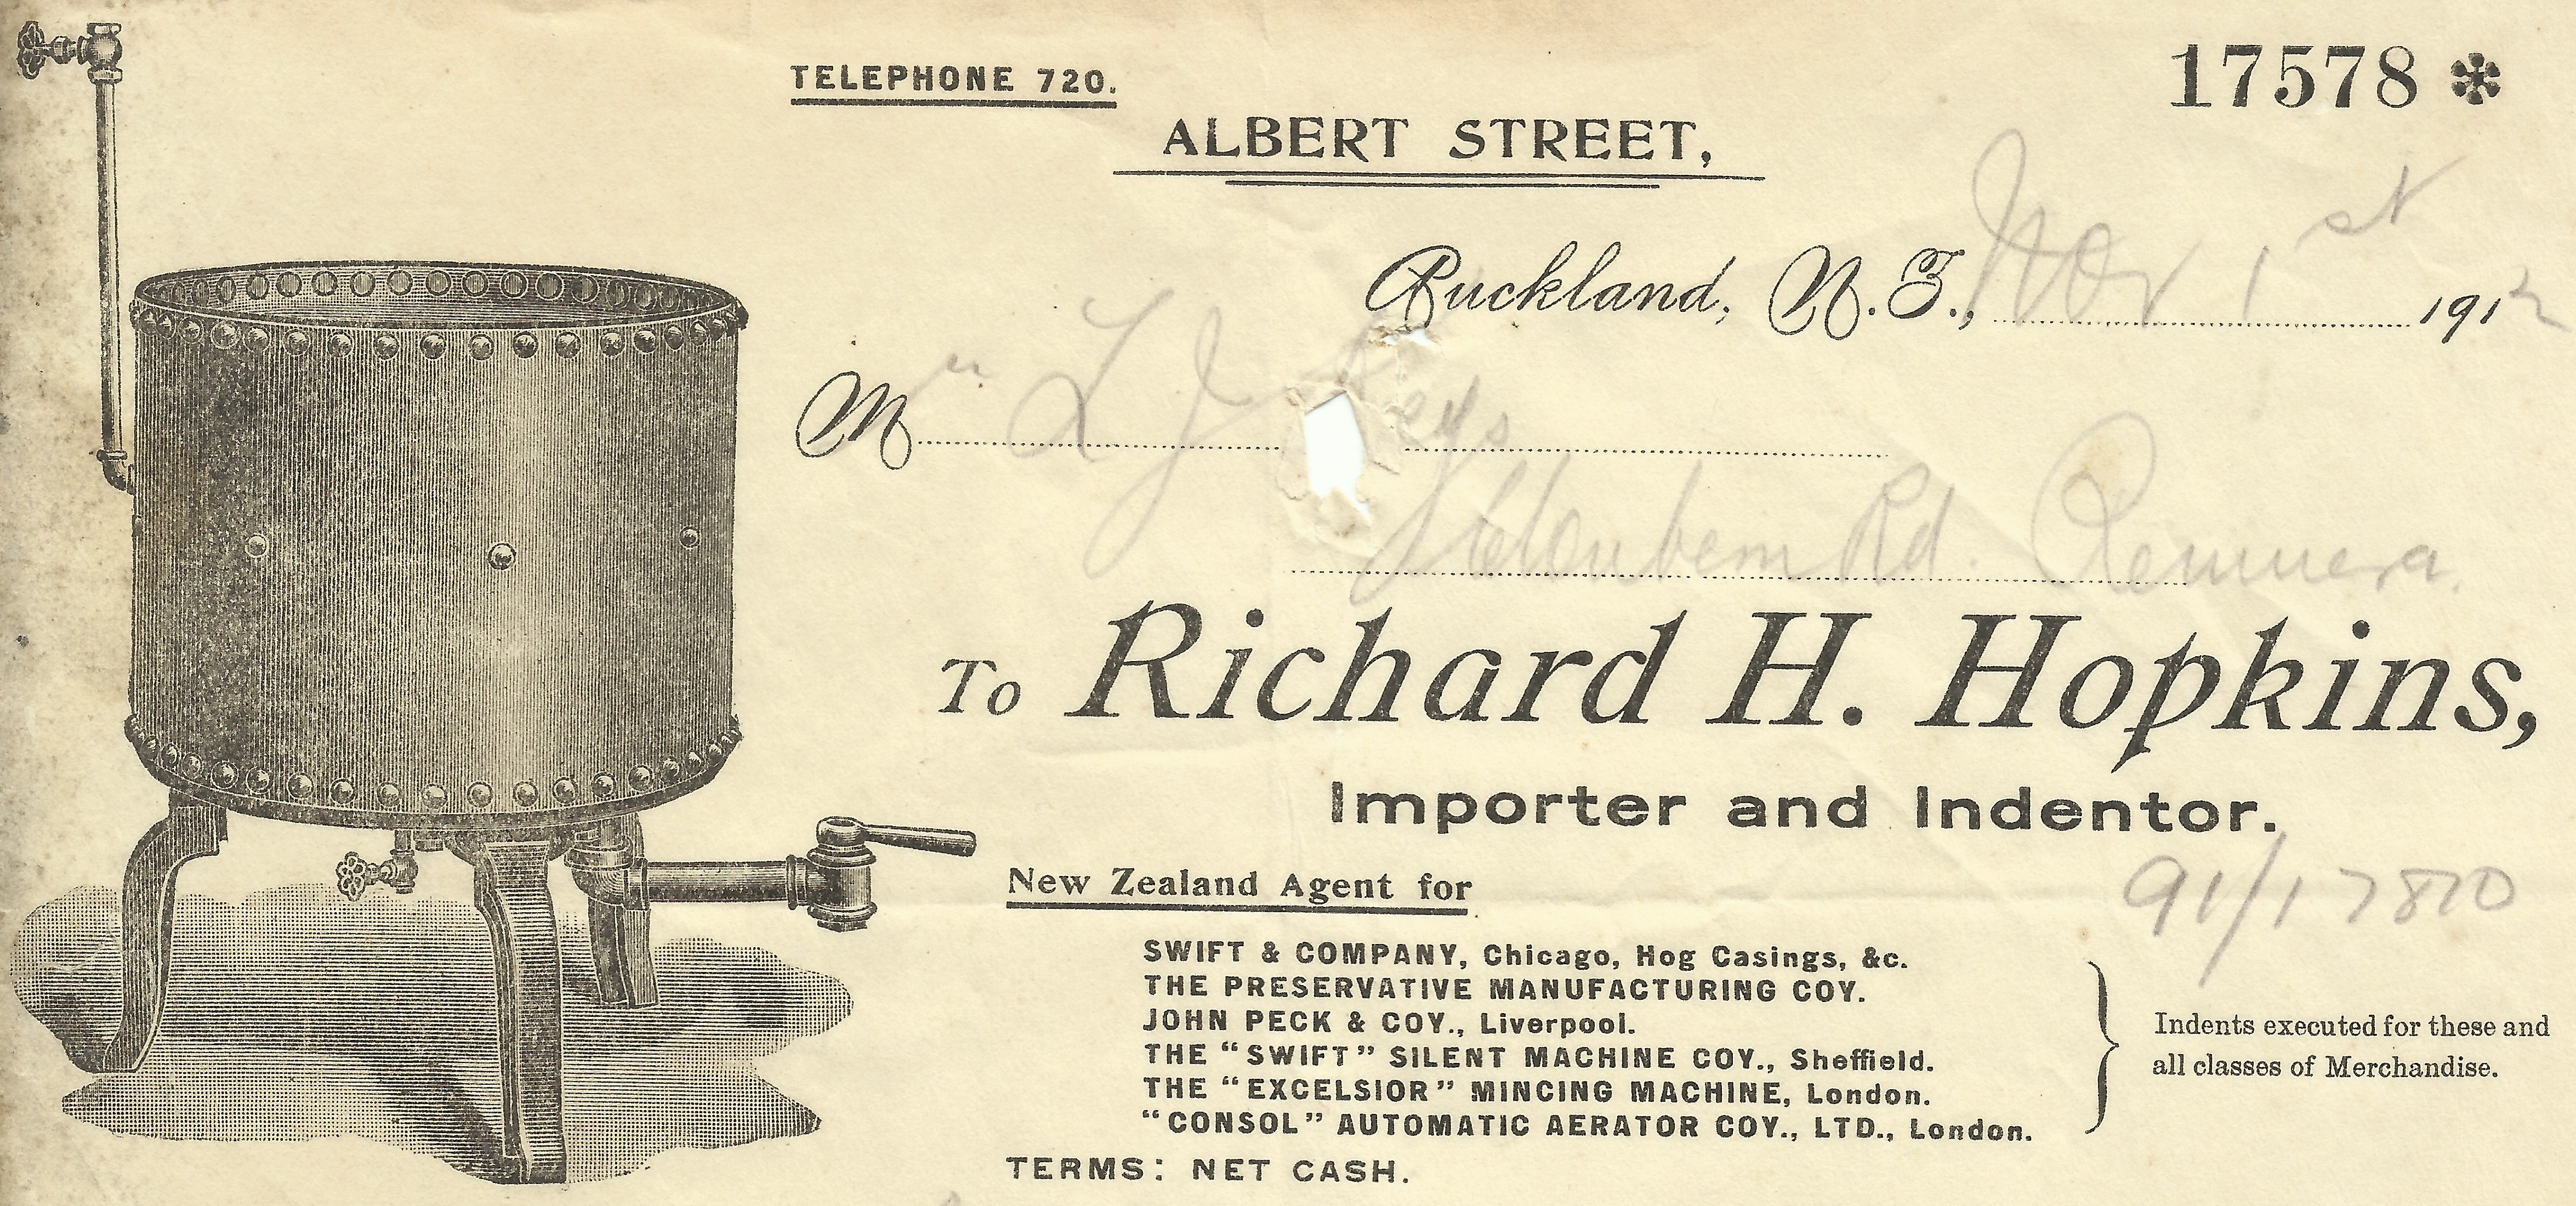 TELEPHONE 720.
17578 *
ALBERT STREET,
Auckland, N.Z., Nov 1st 1912
Mr L J
Rd. Remuera.
To Richard H. Hopkins,
Importer and Indentor.
91/17870
New Zealand Agent for
SWIFT & COMPANY, Chicago, Hog Casings, &c.
THE PRESERVATIVE MANUFACTURING COY.
JOHN PECK & COY., Liverpool.
THE “SWIFT” SILENT MACHINE COY., Sheffield.
THE “EXCELSIOR” MINCING MACHINE, London.
“CONSOL” AUTOMATIC AERATOR COY., LTD., London.
Indents executed for these and
all classes of Merchandise.
TERMS: NET CASH.